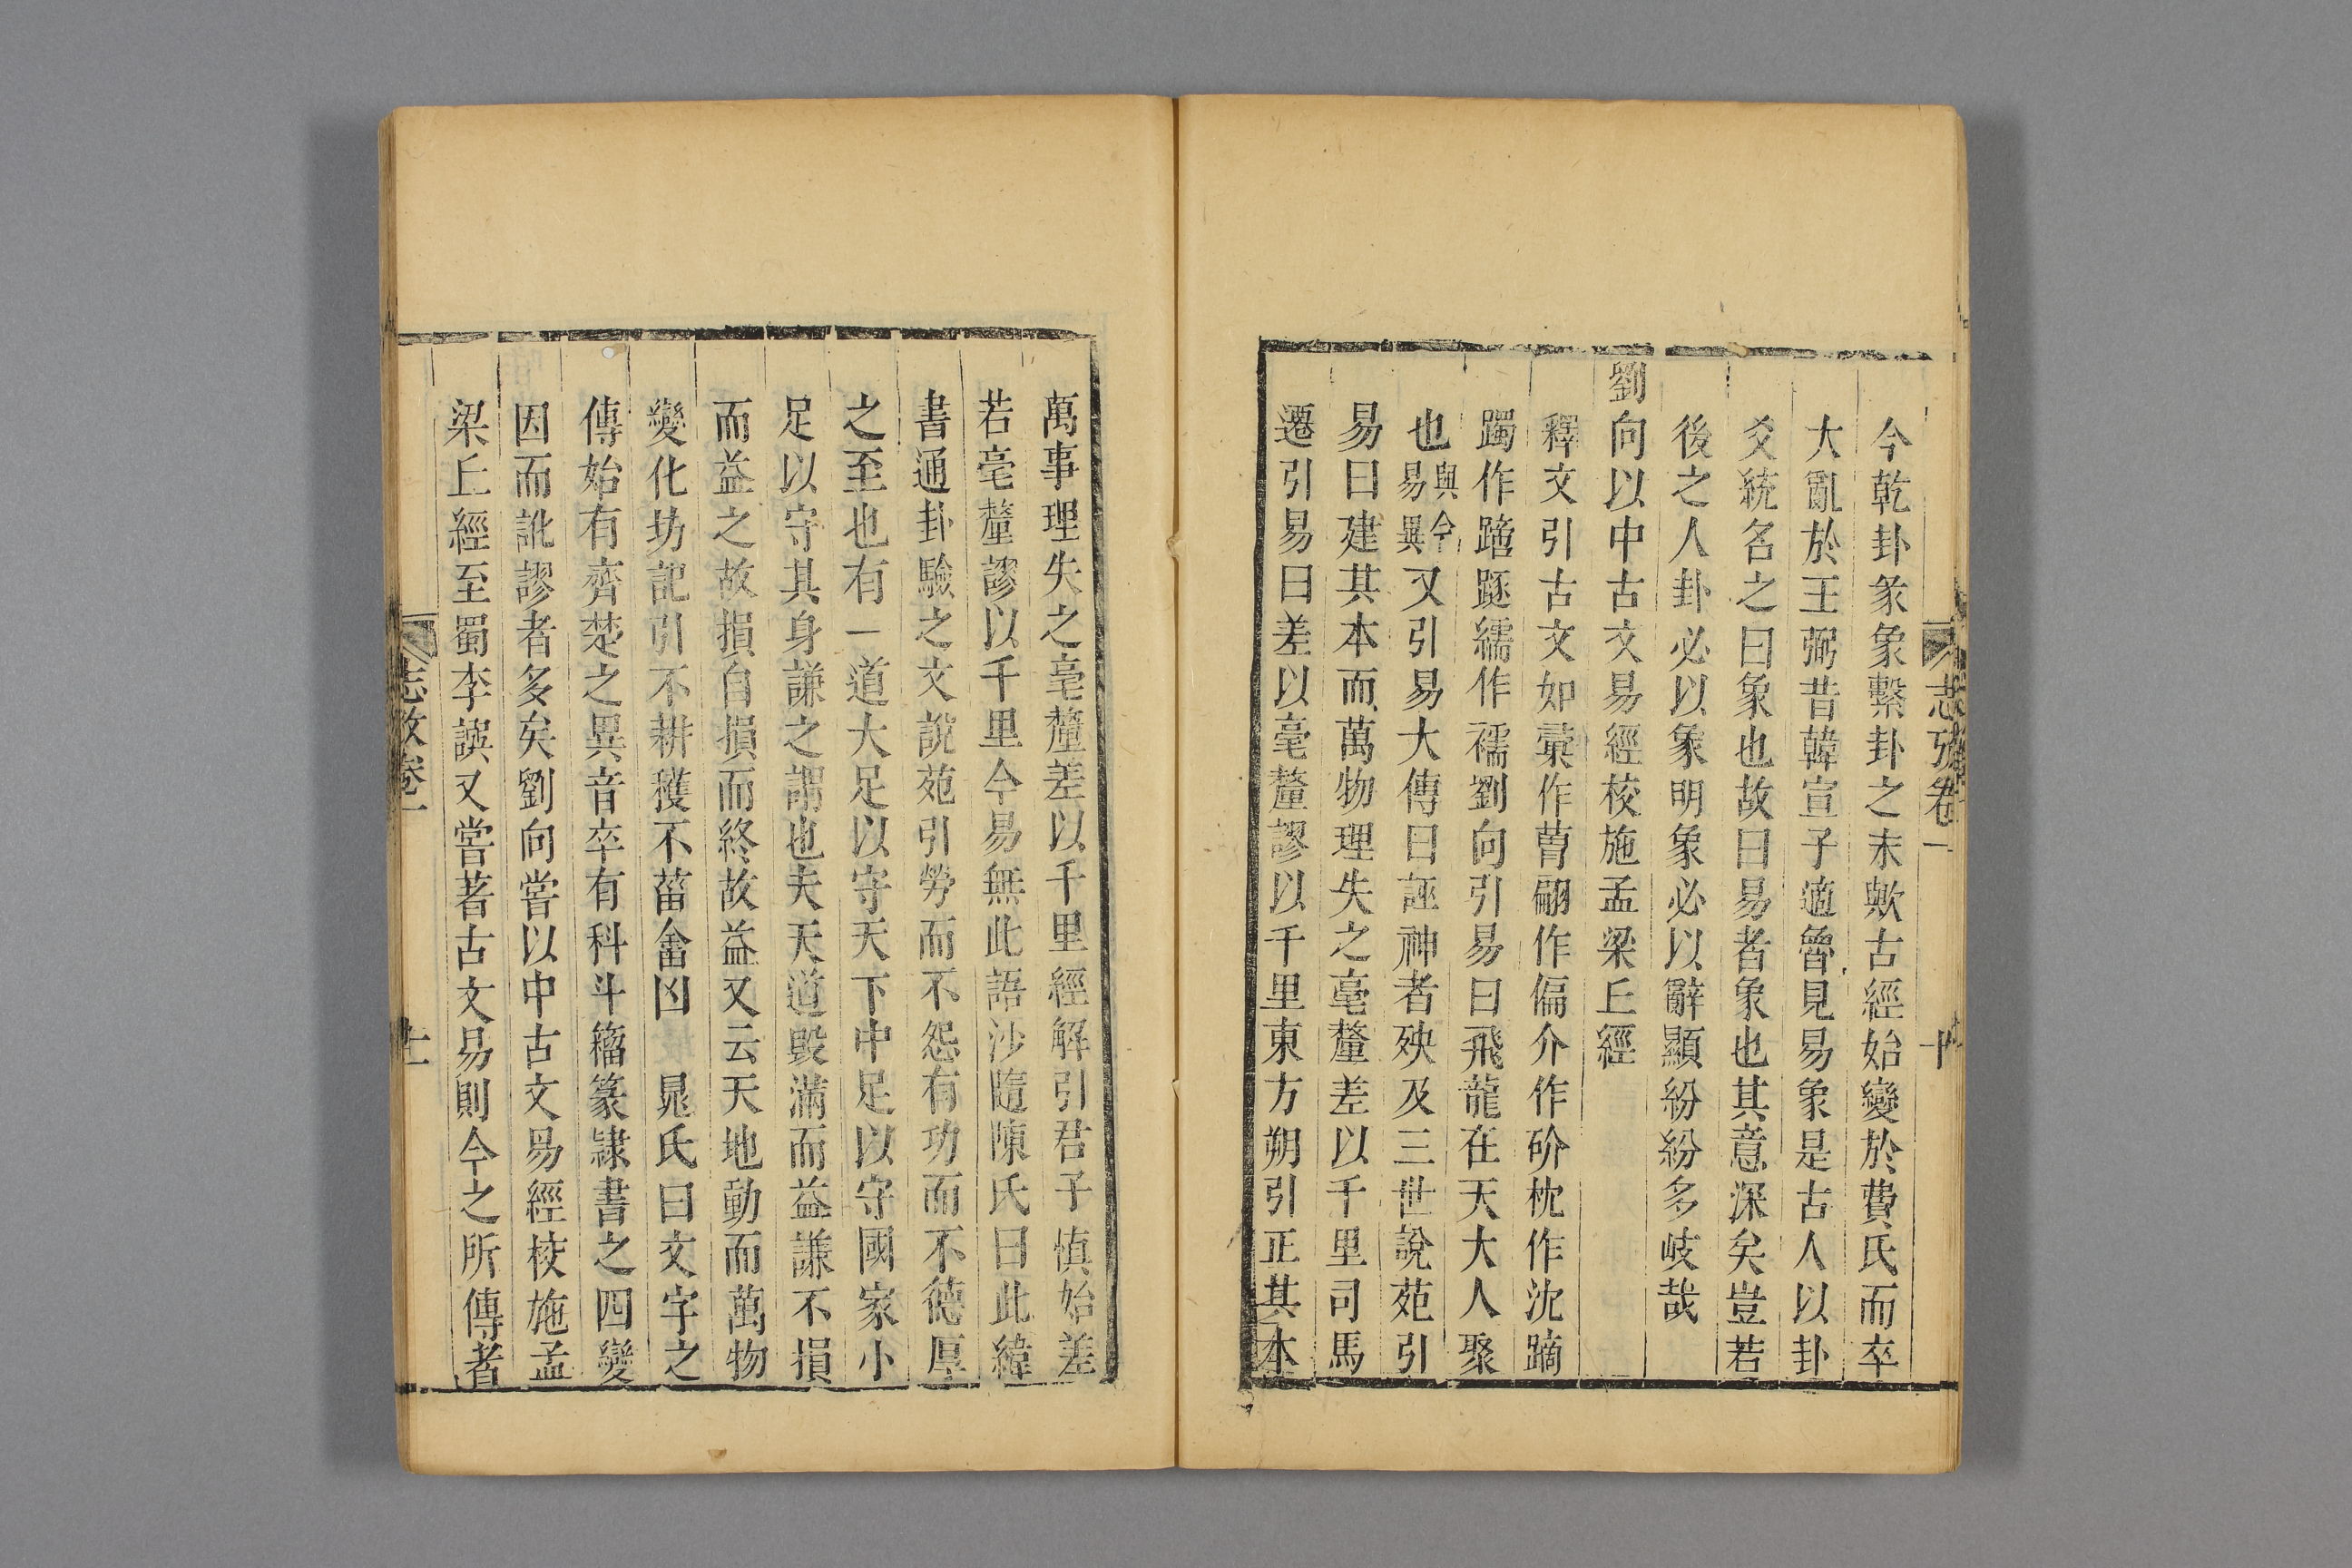 今乾卦彖象繫卦之末歟古經始變於費氏而卒
大亂於王弼昔韓宣子適魯見易象是古人以卦
爻統名之曰象也故曰易者象也其意深矣豈若
後之人卦必以彖明象必以辭顯紛紛多岐哉
劉向以中古文易經校施孟梁丘經
釋文引古文如彚作𦼯翩作偏介作砎枕作沈蹢
躅作蹢𨅖繻作襦劉向引易曰飛龍在天大人聚
也與今易異又引易大傳曰誣神者殃及三世說苑引
易曰建其本而萬物理失之毫釐差以千里司馬
遷引易曰差以毫釐謬以千里東方朔引正其本
萬事理失之毫釐差以千里經解引君子慎始差
若毫釐謬以千里今易無此語沙隨陳氏曰此緯
書通卦驗之文說苑引勞而不怨有功而不德厚
之至也有一道大足以守天下中足以守國家小
足以守其身謙之謂也夫天道毀滿而益謙不損
而益之故損自損而終故益又云天地動而萬物
變化坊記引不耕穫不菑畬凶 晁氏曰文字之
傳始有齊楚之異音卒有科斗籀篆隷書之四變
因而訛謬者多矣劉向嘗以中古文易經校施孟
梁丘經至蜀李譔又嘗著古文易則今之所傳者
志攷卷一
十
志攷卷一
十一